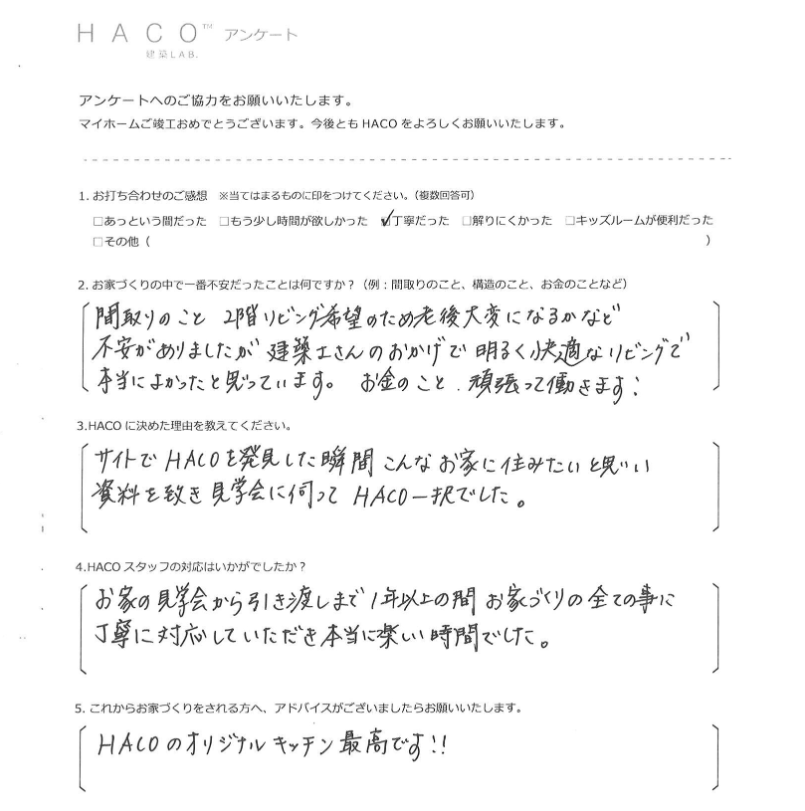 HACO™ アンケート
建築LAB.
アンケートへのご協力をお願いいたします。
マイホームご竣工おめでとうございます。今後とも HACO をよろしくお願いいたします。
1. お打ち合わせのご感想 ※当てはまるものに印をつけてください。（複数回答可）
□あっという間だった □もう少し時間が欲しかった ☑丁寧だった □解りにくかった □キッズルームが便利だった
□その他（ ）
2. お家づくりの中で一番不安だったことは何ですか？（例：間取りのこと、構造のこと、お金のことなど）
間取りのこと 2階リビング希望のため老後大変になるかなど
不安がありましたが 建築士さんのおかげで 明るく快適なリビングで
本当によかったと思っています。 お金のこと、頑張って働きます!
3.HACO に決めた理由を教えてください。
サイトで HACOを発見した瞬間 こんな お家に住みたいと思い
資料を 見学会に伺って HACO一択でした。
4.HACO スタッフの対応はいかがでしたか？
お家の見学会から引き渡しまで 1年以上の間 お家づくりの全ての事に
丁寧に対応していただき本当に楽しい時間でした。
5. これからお家づくりをされる方へ、アドバイスがございましたらお願いいたします。
HACOのオリジナルキッチン最高です!!